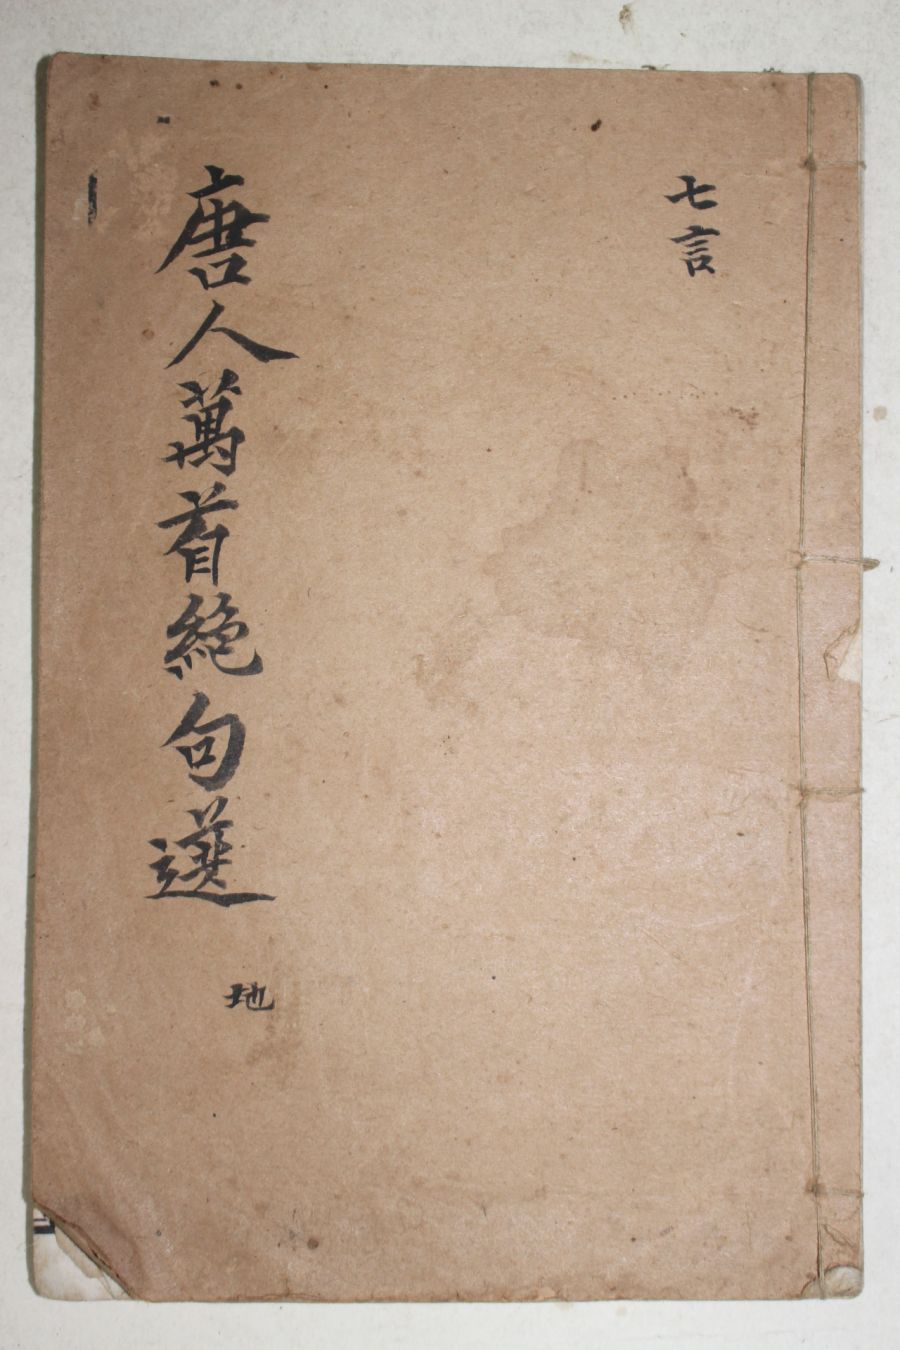 七言
唐人萬首絕句選
地